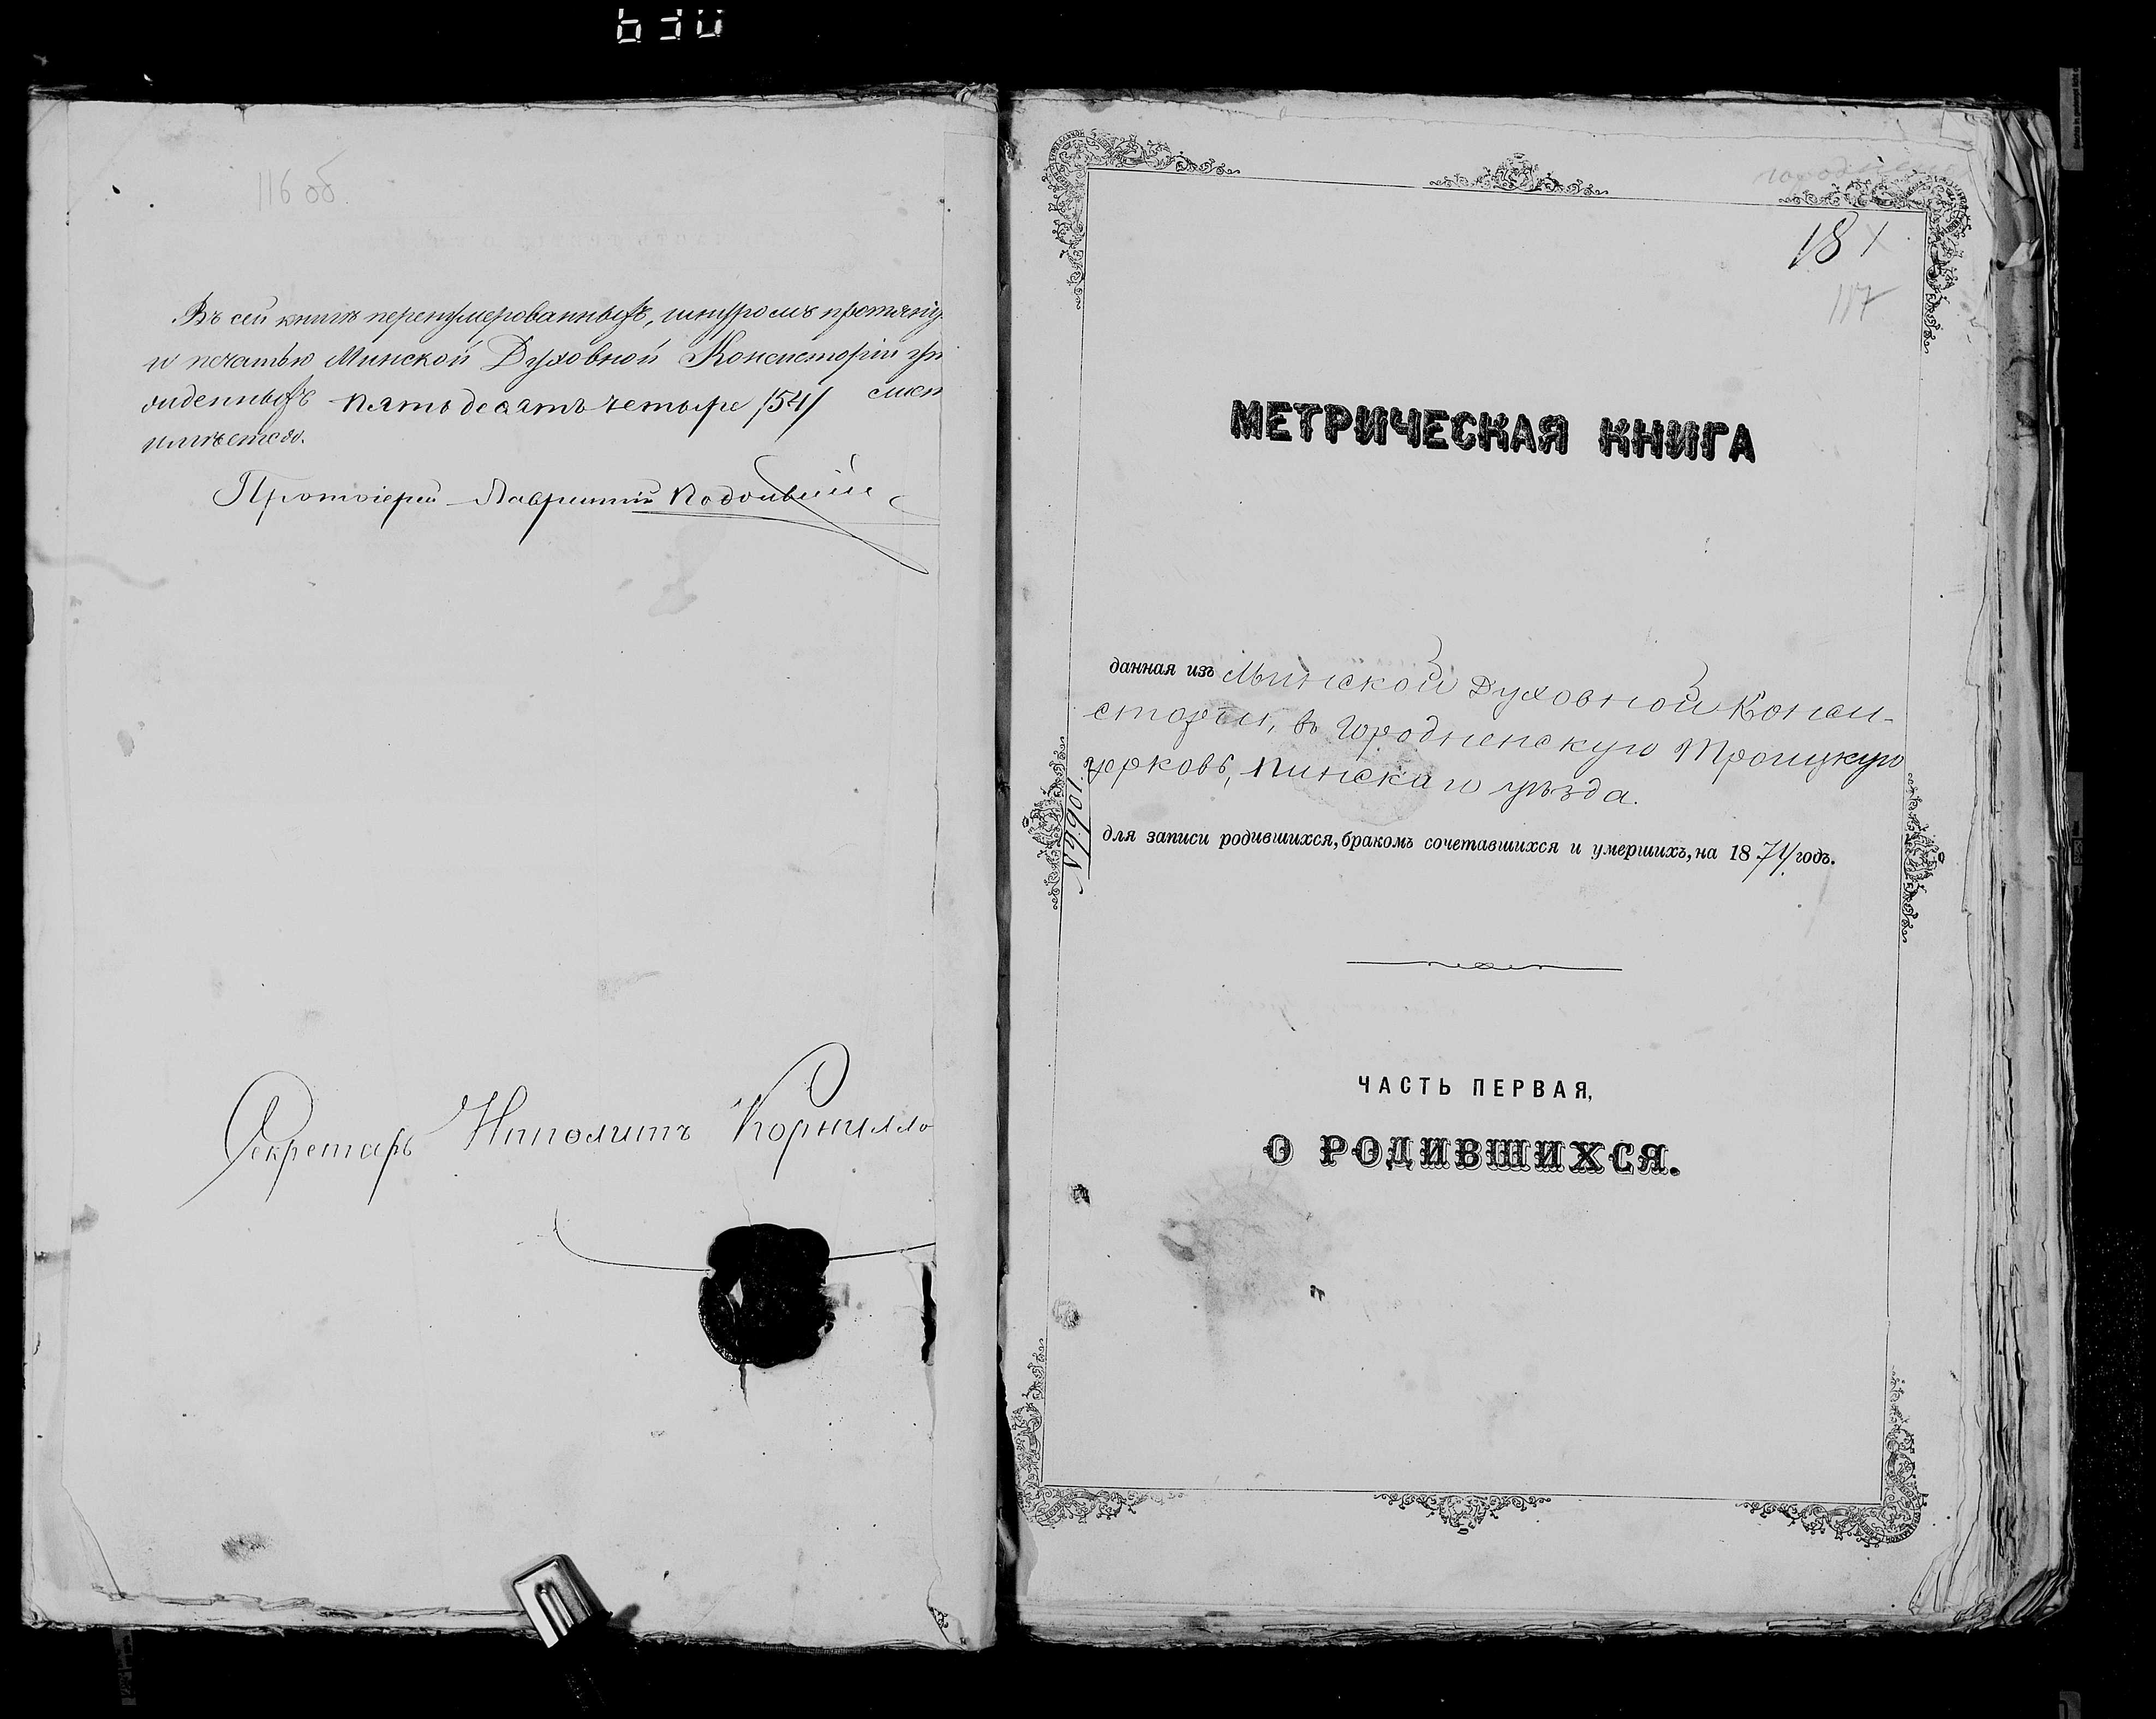 116 об.
Въ сей книгѣ перенумерованныхъ, шнуромъ протяну
и печатью Минской Духовной Консисторіи ут
жденныхъ пятьдесятъ четыре /54/ лист
имѣется.
Протоіерей Лаврентій
Секретарь Ипполитъ Корнилло
18
117
МЕТРИЧЕСКАЯ КНИГА
данная изъ Минской Духовной Конси-
сторіи, въ Городненскую Троицкую
церковь, Пинскаго уѣзда.
для записи родившихся, бракомъ сочетавшихся и умершихъ, на 1874 годъ.
ЧАСТЬ ПЕРВАЯ,
О РОДИВШИХСЯ.